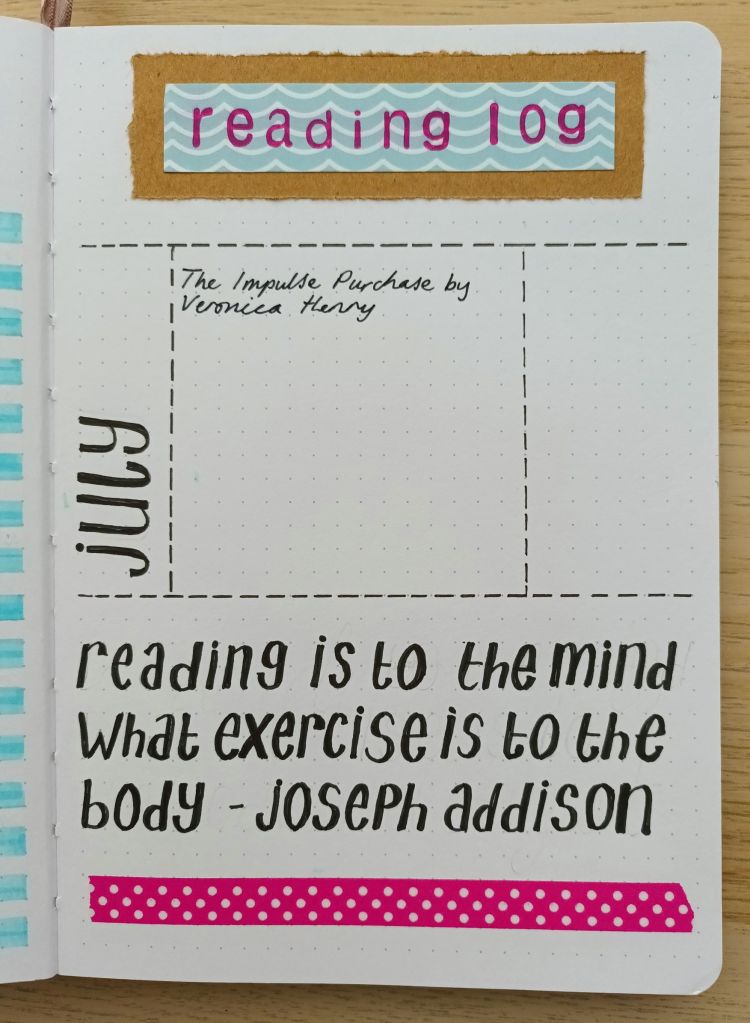 reading log
The Impulse Purchase by
Veronica Henry
july
reading is to the mind
What exercise is to the
body - joseph addison